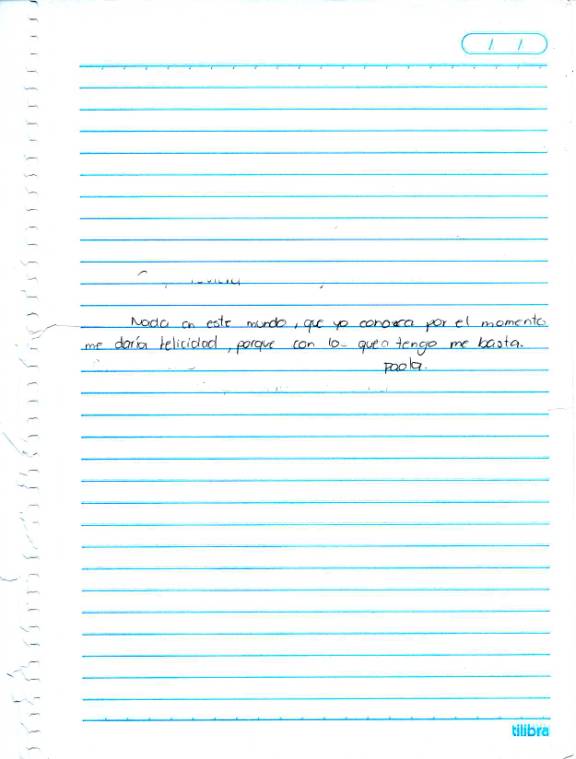 Nada en este mundo, que yo conosca por el momento
me daría felicidad, porque con lo que tengo me basta.
Paola.
tilibra